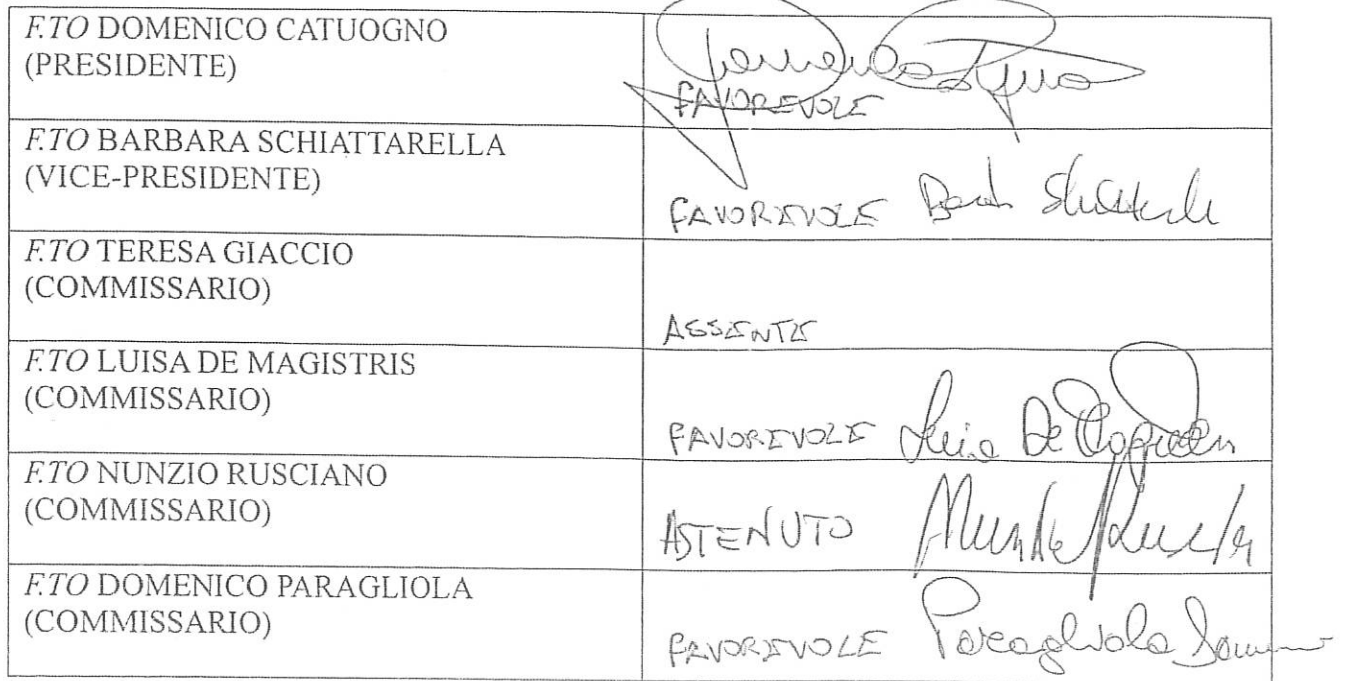 F.TO DOMENICO CATUOGNO
(PRESIDENTE)
FAVOREVOLE
F.TO BARBARA SCHIATTARELLA
(VICE-PRESIDENTE)
FAVOREVOLE
F.TO TERESA GIACCIO
(COMMISSARIO)
ASSENTE
F.TO LUISA DE MAGISTRIS
(COMMISSARIO)
FAVOREVOLE Luisa De Magistris
F.TO NUNZIO RUSCIANO
(COMMISSARIO)
ASTENUTO
F.TO DOMENICO PARAGLIOLA
(COMMISSARIO)
FAVOREVOLE Paragliola